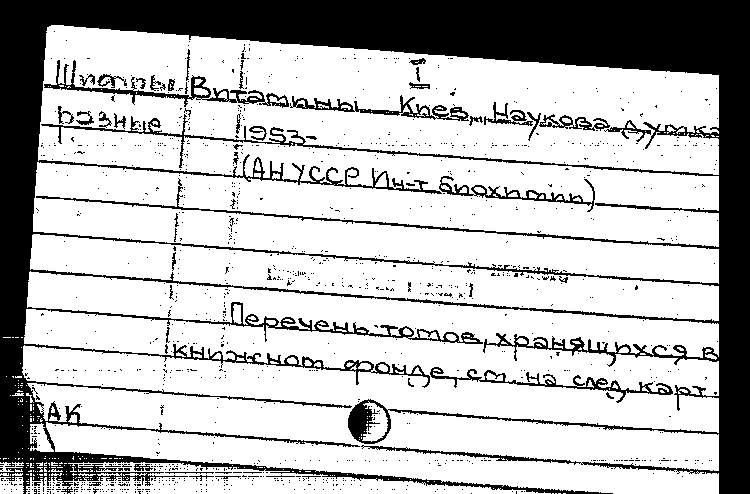 I
Шифры Витамины Киев, Наукова думка
разные 1953-
(АН УССР Ин-т биохимии)
Перечень томов, хранящихся в
книжном фонде, см. на след. карт.
АК